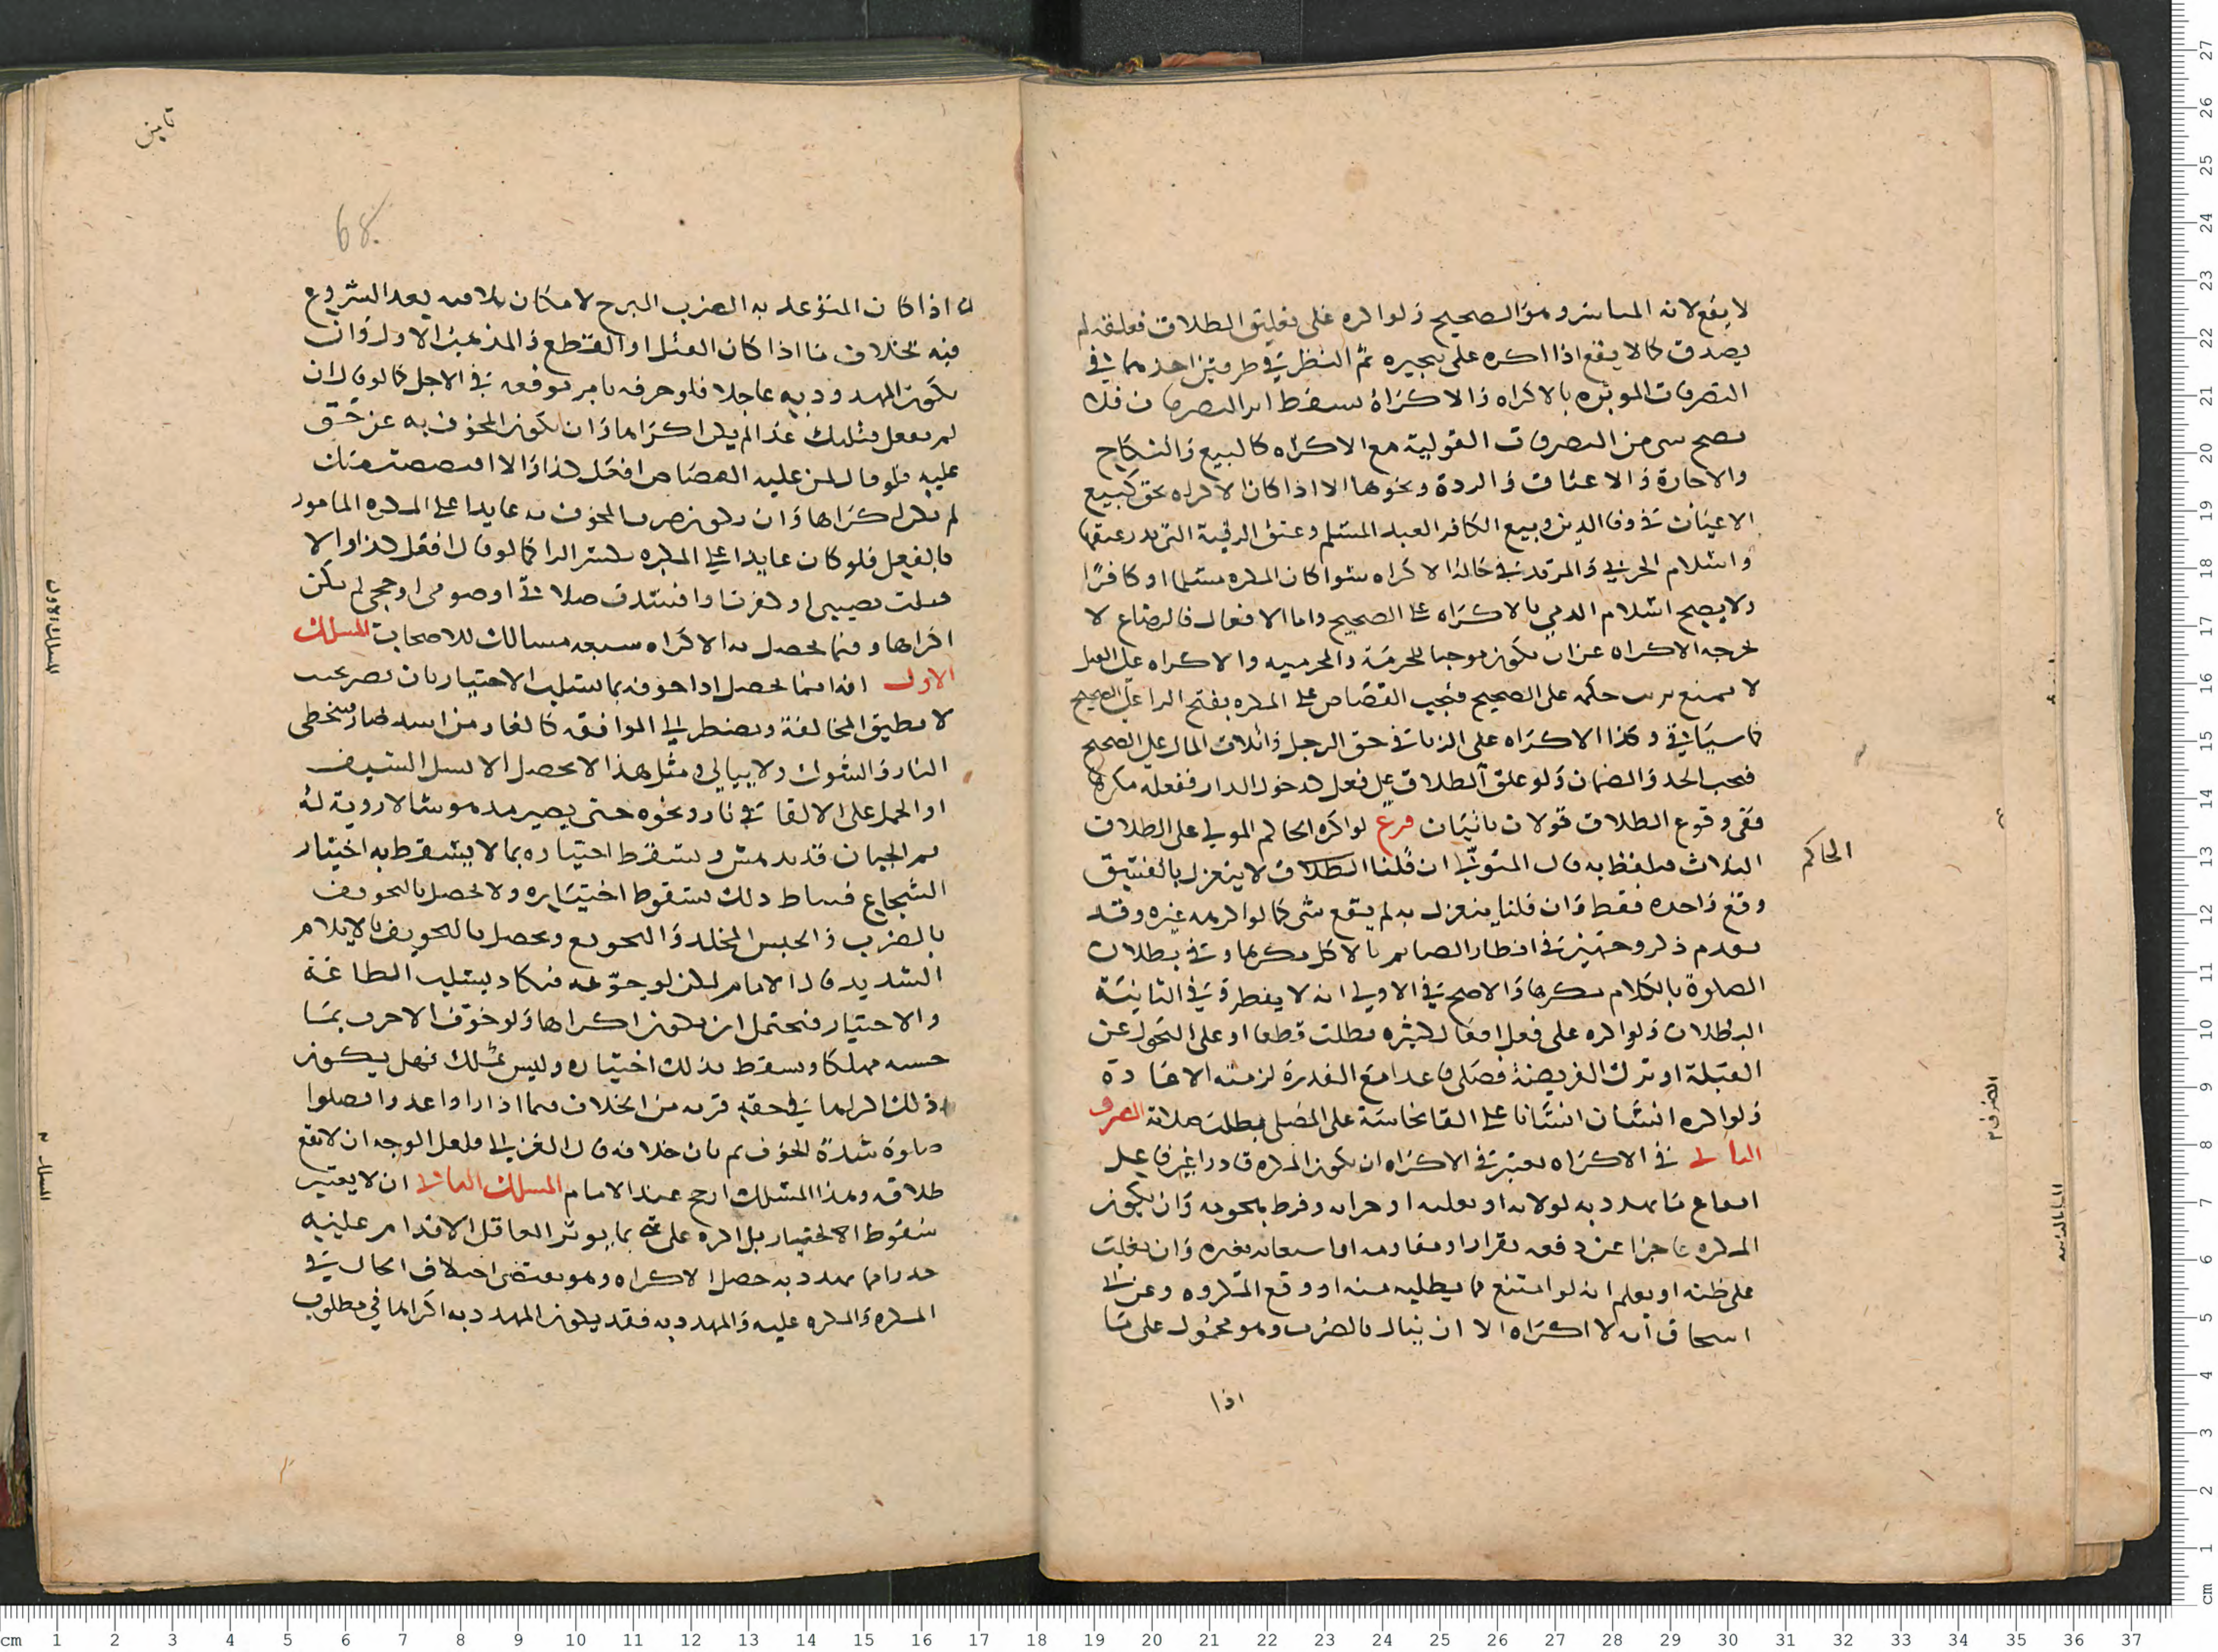 لا يقع لانه المباشر وهو الصحيح ولو اكره على تعليق الطلاق فعلقه لم
يصدق كما لا يقع اذا اكره على تنجيزه ثم النظر في طرفين احدهما في
التصرفات الموثره بالاكراه والاكراه يسقط اثر التصرفات فلا
يصح شي من التصرفات القولية مع الاكراه كالبيع والنكاح
والاجارة والاعتاق والردة ونحوها الا اذا كان الاكراه بحق كبيع
الاعيان في وفا الدين وبيع الكافر العبد المسلم وعتق الرقبة التي نذر عتقها
واسلام الحربي والمرتد في حالة الاكراه سوا كان المكره مسلما او كافرا
ولا يصح اسلام الذمي بالاكراه على الصحيح واما الافعال فالرضاع لا
يخرجه الاكراه عن ان يكون موجبا للحرمة والمحرميه والاكراه على القتل
لا يمنع ترتب حكمه على الصحيح فيجب القصاص على المكره بفتح الرا على الصحيح
كما سياتي وكذا الاكراه على الزنا في حق الرجل واتلاف المال على الصحيح
فيجب الحد والضمان ولو علق الطلاق على فعل كدخول الدار ففعله مكرها
ففي وقوع الطلاق قولان ياتيان فرع لو اكره الحاكم المولي على الطلاق
الثلاث فتلفظ به قال المتولي ان قلنا الطلاق لا ينعزل بالفسق
وقع واحده فقط وان قلنا ينعزل به لم يقع شي كما لو اكرهه غيره وقد
تقدم ذكر وجهين في افطار الصايم بالاكل مكرها وفي بطلان
الصلوة بالكلام مكرها والاصح في الاولى انه لا يفطر وفي الثانية
البطلان ولو اكره على فعل افعال كثيره بطلت قطعا او على التحول عن
القبلة او ترك الفريضة فصلى قاعدا مع القدرة لزمته الاعادة
ولو اكره انسان انسانا على القا نجاسة على المصلي بطلت صلاته الطرف
الثاني في الاكراه يعتبر في الاكراه ان يكون المكره قادرا غير على
ايقاع ما يهدد به لولاية او تغلب او فرط بهجومه وان يكون
المكره عاجزا عن دفعه بفرار او مقاومه او استعانه بغيره وان يغلب
على ظنه او يعلم انه لو امتنع مما يطلبه منه اوقع المكروه وعن ابي
اسحاق انه لا اكراه الا ان ينال بالضرب وهو محمول على ما
اذا
الحاكم
ثامن
68
اذا كان المتوعد به الضرب المبرح لامكان تلافيه بعد الشروع
فيه بخلاف ما اذا كان القتل او القطع والمذهب الاول وان
يكون المهدد به عاجلا فلو خوفه بامر توقعه في الاجل كما لو قال ان
لم تفعل قتلتك غدا لم يكن اكراها وان يكون المخوف به عن حق
عليه فلو قال لمن عليه القصاص افعل كذا والا اقتصصت منك
لم يكن اكراها وان يكون ضرر المخوف به عايدا على المكره المامور
بالفعل فلو كان عايدا على المكره بكسر الرا كما لو قال افعل كذا والا
قتلت نفسي او كفرت او افسدت صلاتي او صومي او حجي لم يكن
اكراها وفيما يحصل به الاكراه سبعه مسالك للاصحاب المسلك
الاول انه انما يحصل اذا خوفه بما يسلب الاختيار بان يصير بحيث
لا يطيق المخالفة ويضطر الى الموافقه كالفار من اسد ضار متخطي
النار والشوك ولا يبالي ومثل هذا لا يحصل الا بسل السيف
او الحمل على الالقا في نار ونحوه حتى يصير مدهوشا لا روية له
ثم الجبان قد يدهش ويسقط اختياره بما لا يسقط به اختيار
الشجاع فيناط ذلك بسقوط اختياره ولا يحصل بالتخويف
بالضرب والحبس المخلد والتجويع ويحصل بالتخويف بالايلام
الشديد قال الامام لكن لو جوعه فكاد يسلب الطاقة
والاختيار فيحتمل ان يكون اكراها ولو خوف الاخرق بما
حسبه مهلكا ويسقط بذلك اختياره وليس بمهلك فهل يكون
ذلك اكراها في حقه قرب من الخلاف فيما اذا راوا عدوا فصلوا
صلوة شدة الخوف ثم بان خلافه قال الغزالي ولعل الوجه ان لا يقع
طلاقه وهذا المسلك ارجح عند الامام المسلك الثاني ان لا يعتبر
سقوط الاختيار بل اكره على بما يوثر العاقل الاقدام عليه
حذرا مما يهدد به حصل الاكراه وهو يقتضي اختلاف الحال في
المكره والمكره عليه والمهدد به فقد يكون المهدد به اكراها في مطلوب
المسلك الاول